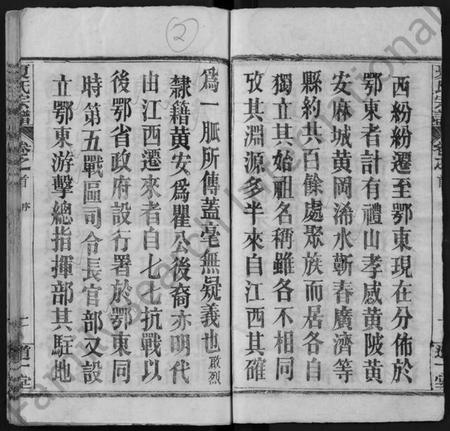 西紛紛遷至鄂東現在分佈於
鄂東者計有禮山孝感黄陂黄
安麻城黄岡浠水蘄春廣濟等
縣約共百餘處聚族而居各自
獨立其始祖名稱雖各不相同
攷其淵源多半來自江西其確
夏氏宗譜 卷之首 序 道一堂
爲一脈所傳蓋毫無疑義也敢烈
隸籍黄安爲瞿公後裔亦明代
由江西遷來者自七七抗戰以
後鄂省政府設行署於鄂東同
時第五戰區司令長官部又設
立鄂東游擊總指揮部其駐地
②